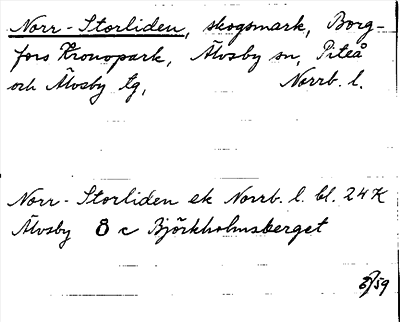 Norr-Storliden, skogsmark, Borg-
fors Kronopark, Älvsby sn, Piteå
och Älvsby tg, Norrb. l.
Norr-Storliden ek Norrb. l. bl. 24 K
Älvsby 8 c Björkholmsberget
/59